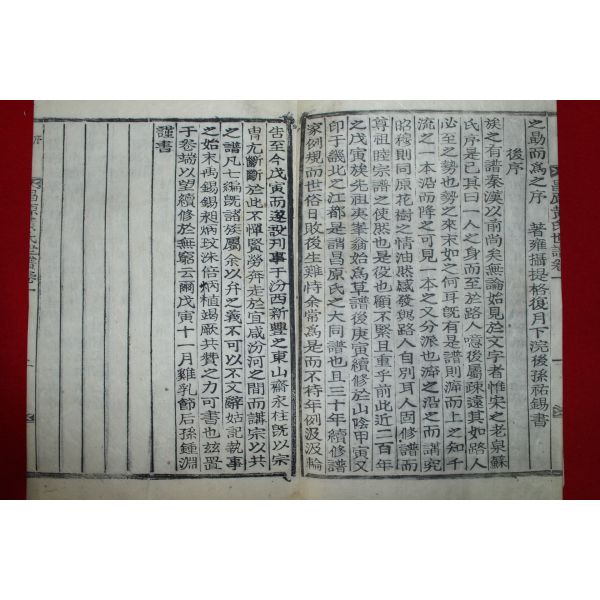 之勗而為之序 著雍攝提格復月下浣後孫祐錫書
後序
族之有譜秦漢以前尚矣無論始見於文字者惟宋之老泉蘇
氏序是已其曰一人之身而至於路人噫後屬疎遠其如路人
必至之勢也勢之來末如之何耳旣有是譜則泝而上之知千
流之一本沿而降之可見一本之又分派也泝之沿之而講究
昭穆則同原花樹之情油然感發與路人自別耳人固修譜而
尊祖睦宗譜之使然也是役也顧不緊且重乎前此近二百年
之戊寅族先祖夾峯翁始為草譜後庚寅續修於山陰甲寅又
印于畿北之江都是謂昌原氏之大同譜也且三十年續修譜
家例規而世俗日敗後生難恃余常為是而不待年例汲汲輪
告至今戊寅而遂設刋事于汾西新豐之東山齋永柱旣以宗
冑尤斷斷於此不憚賢勞奔走於宜咸汾河之間而講宗以共
之譜凡七編旣諸族屬余以弁之義不可以不文辭姑記執事
之始末再錫錫昶炳玟洙倍炳植竭厥共贊之力可書也玆置
于卷端以望續修於無窮云爾戊寅十一月雞乳節后孫鍾淵
謹書